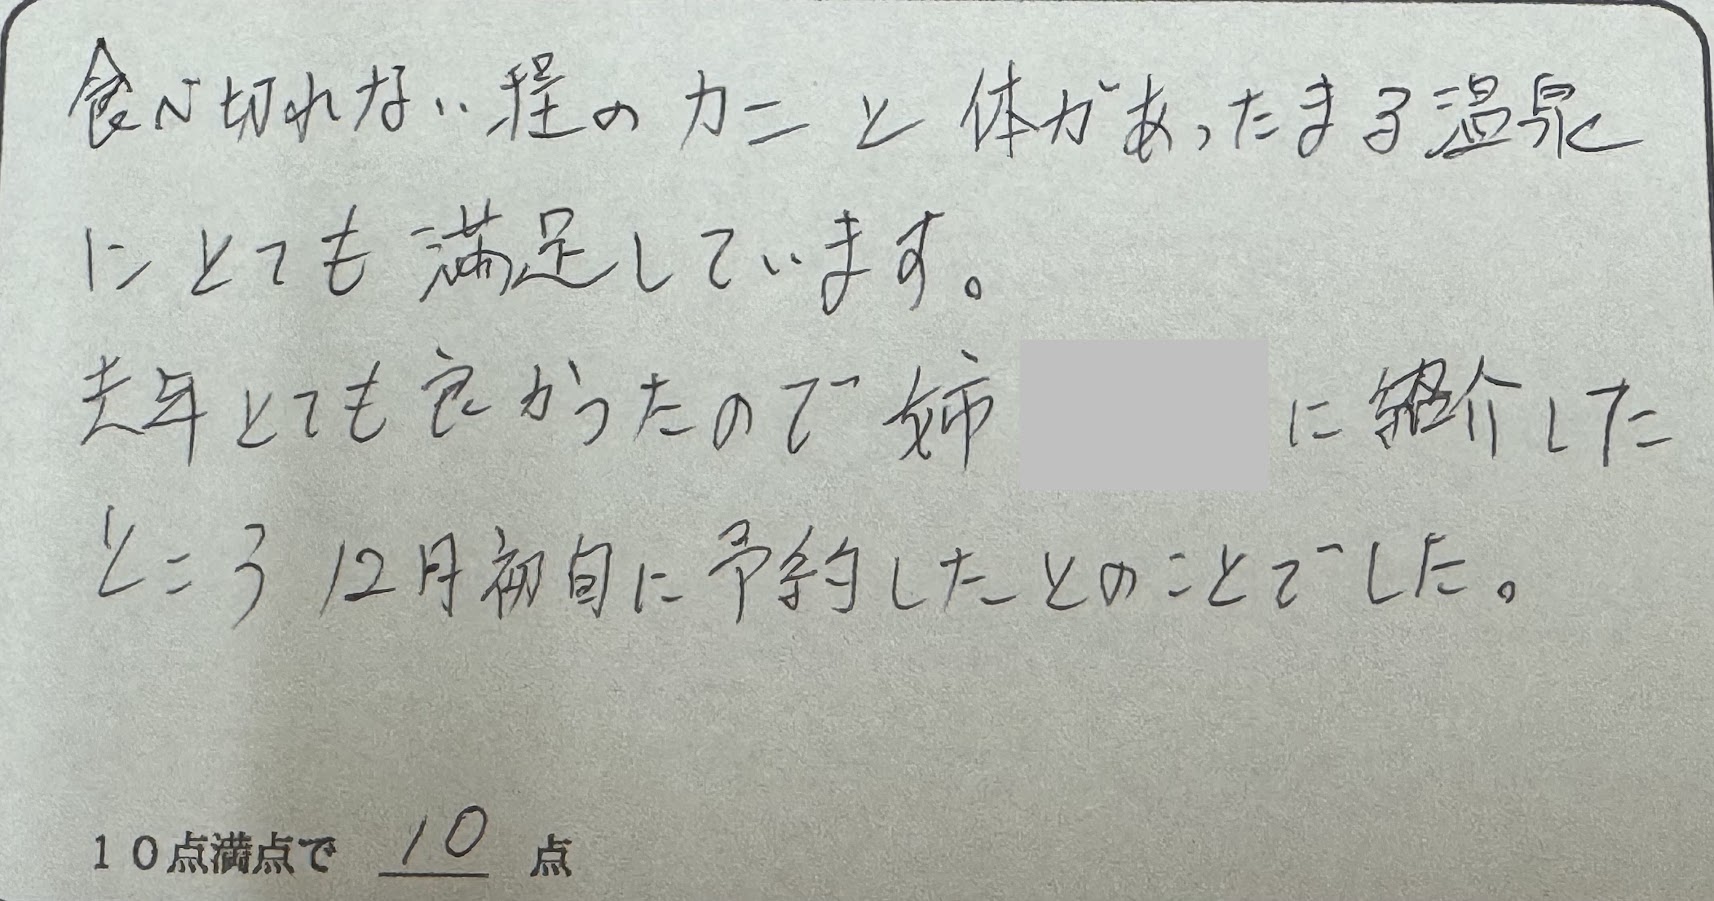 食べ切れない程のカニと体があったまる温泉
にとても満足しています。
去年とても良かったので姉 に紹介した
ところ12月初旬に予約したとのことでした。
10点満点で 10 点